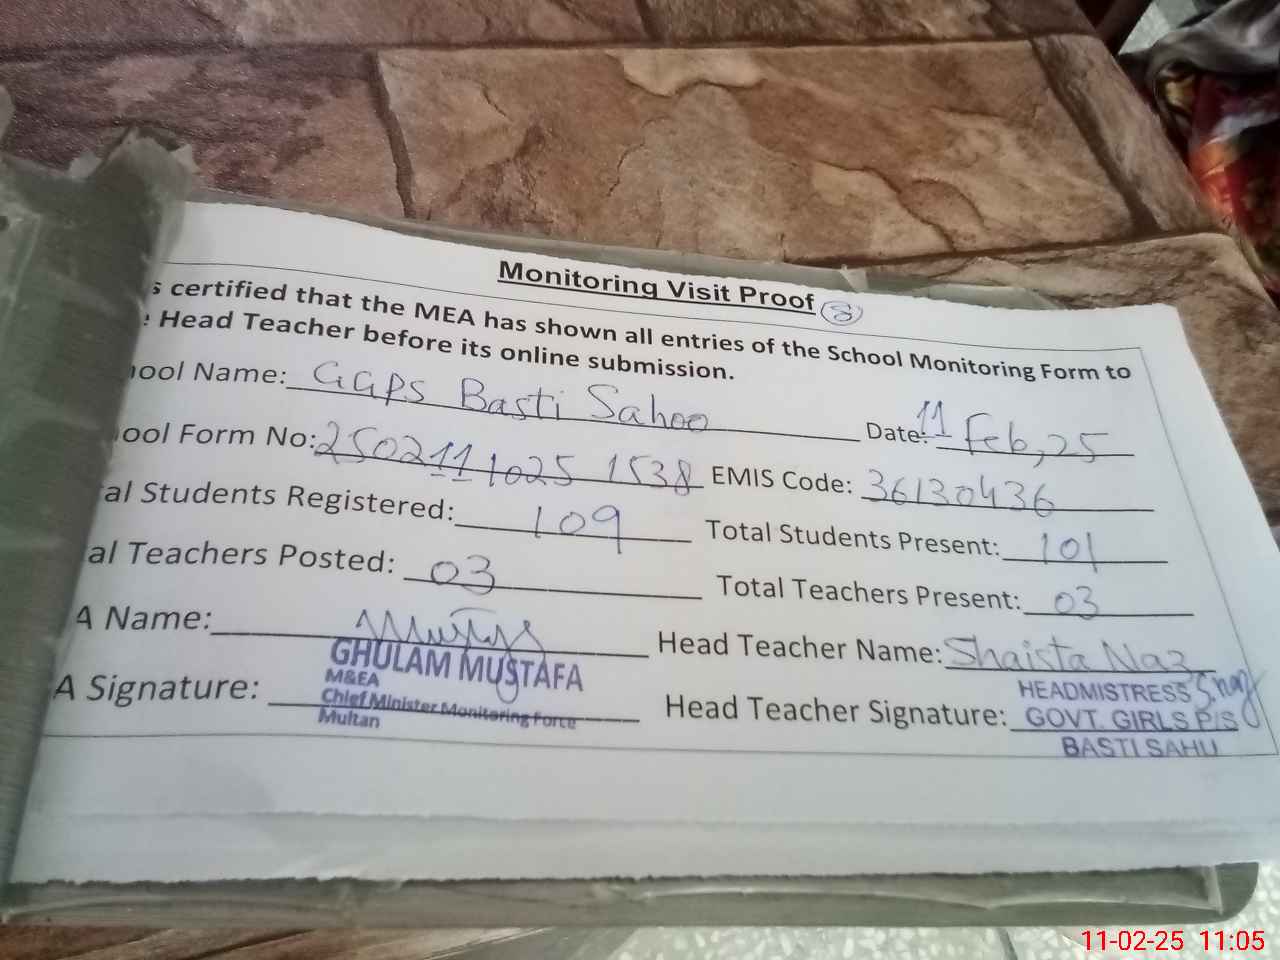 Monitoring Visit Proof 8
s certified that the MEA has shown all entries of the School Monitoring Form to
e Head Teacher before its online submission.
ool Name: GGPS Basti Sahoo Date: 11 Feb, 25
ool Form No: 2502111025 1538 EMIS Code: 36130436
al Students Registered: 109 Total Students Present: 101
al Teachers Posted: 03 Total Teachers Present: 03
A Name: Head Teacher Name: Shaista Naz
GHULAM MUSTAFA
M&EA
Chief Minister Monitoring Force
Multan
A Signature: Head Teacher Signature: S.naz
HEADMISTRESS
GOVT. GIRLS P/S
BASTI SAHU
11-02-25 11:05